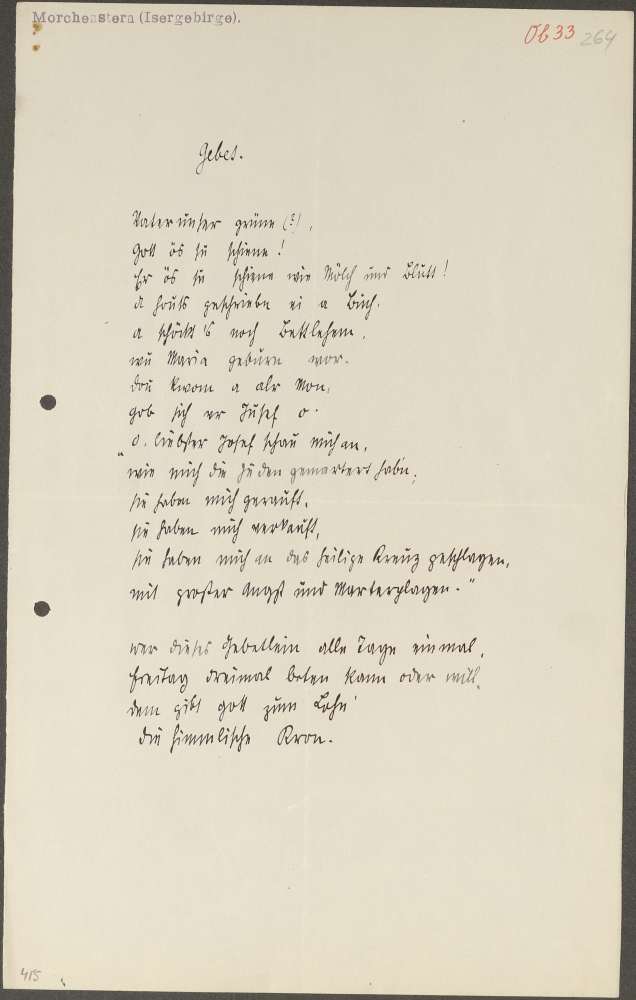 Morchenstern (Isergebirge).
Ob 33 264
Gebet.
Vaterunser grüne (?),
Gott ös su schiene!
Er ös su schiene wie Mölch und Blutt!
A houts geschriebn ei a Buch.
a schöckt's noch Bettlehem,
wu Maria geburn wor.
Dou kwom a alr Mon,
gob sich vr Jusef o.
"O, liebster Josef schau mich an,
wie mich die Juden gemartert habn;
sie haben mich gerauft,
sie haben mich verkauft,
sie haben mich an das heilige Kreuz geschlagen,
mit großer Angst und Marterplagen."
Wer dieses Gebetlein alle Tage einmal,
Freitag dreimal beten kann oder will,
dem gibt Gott zum Lohn
die himmlische Kron.
415